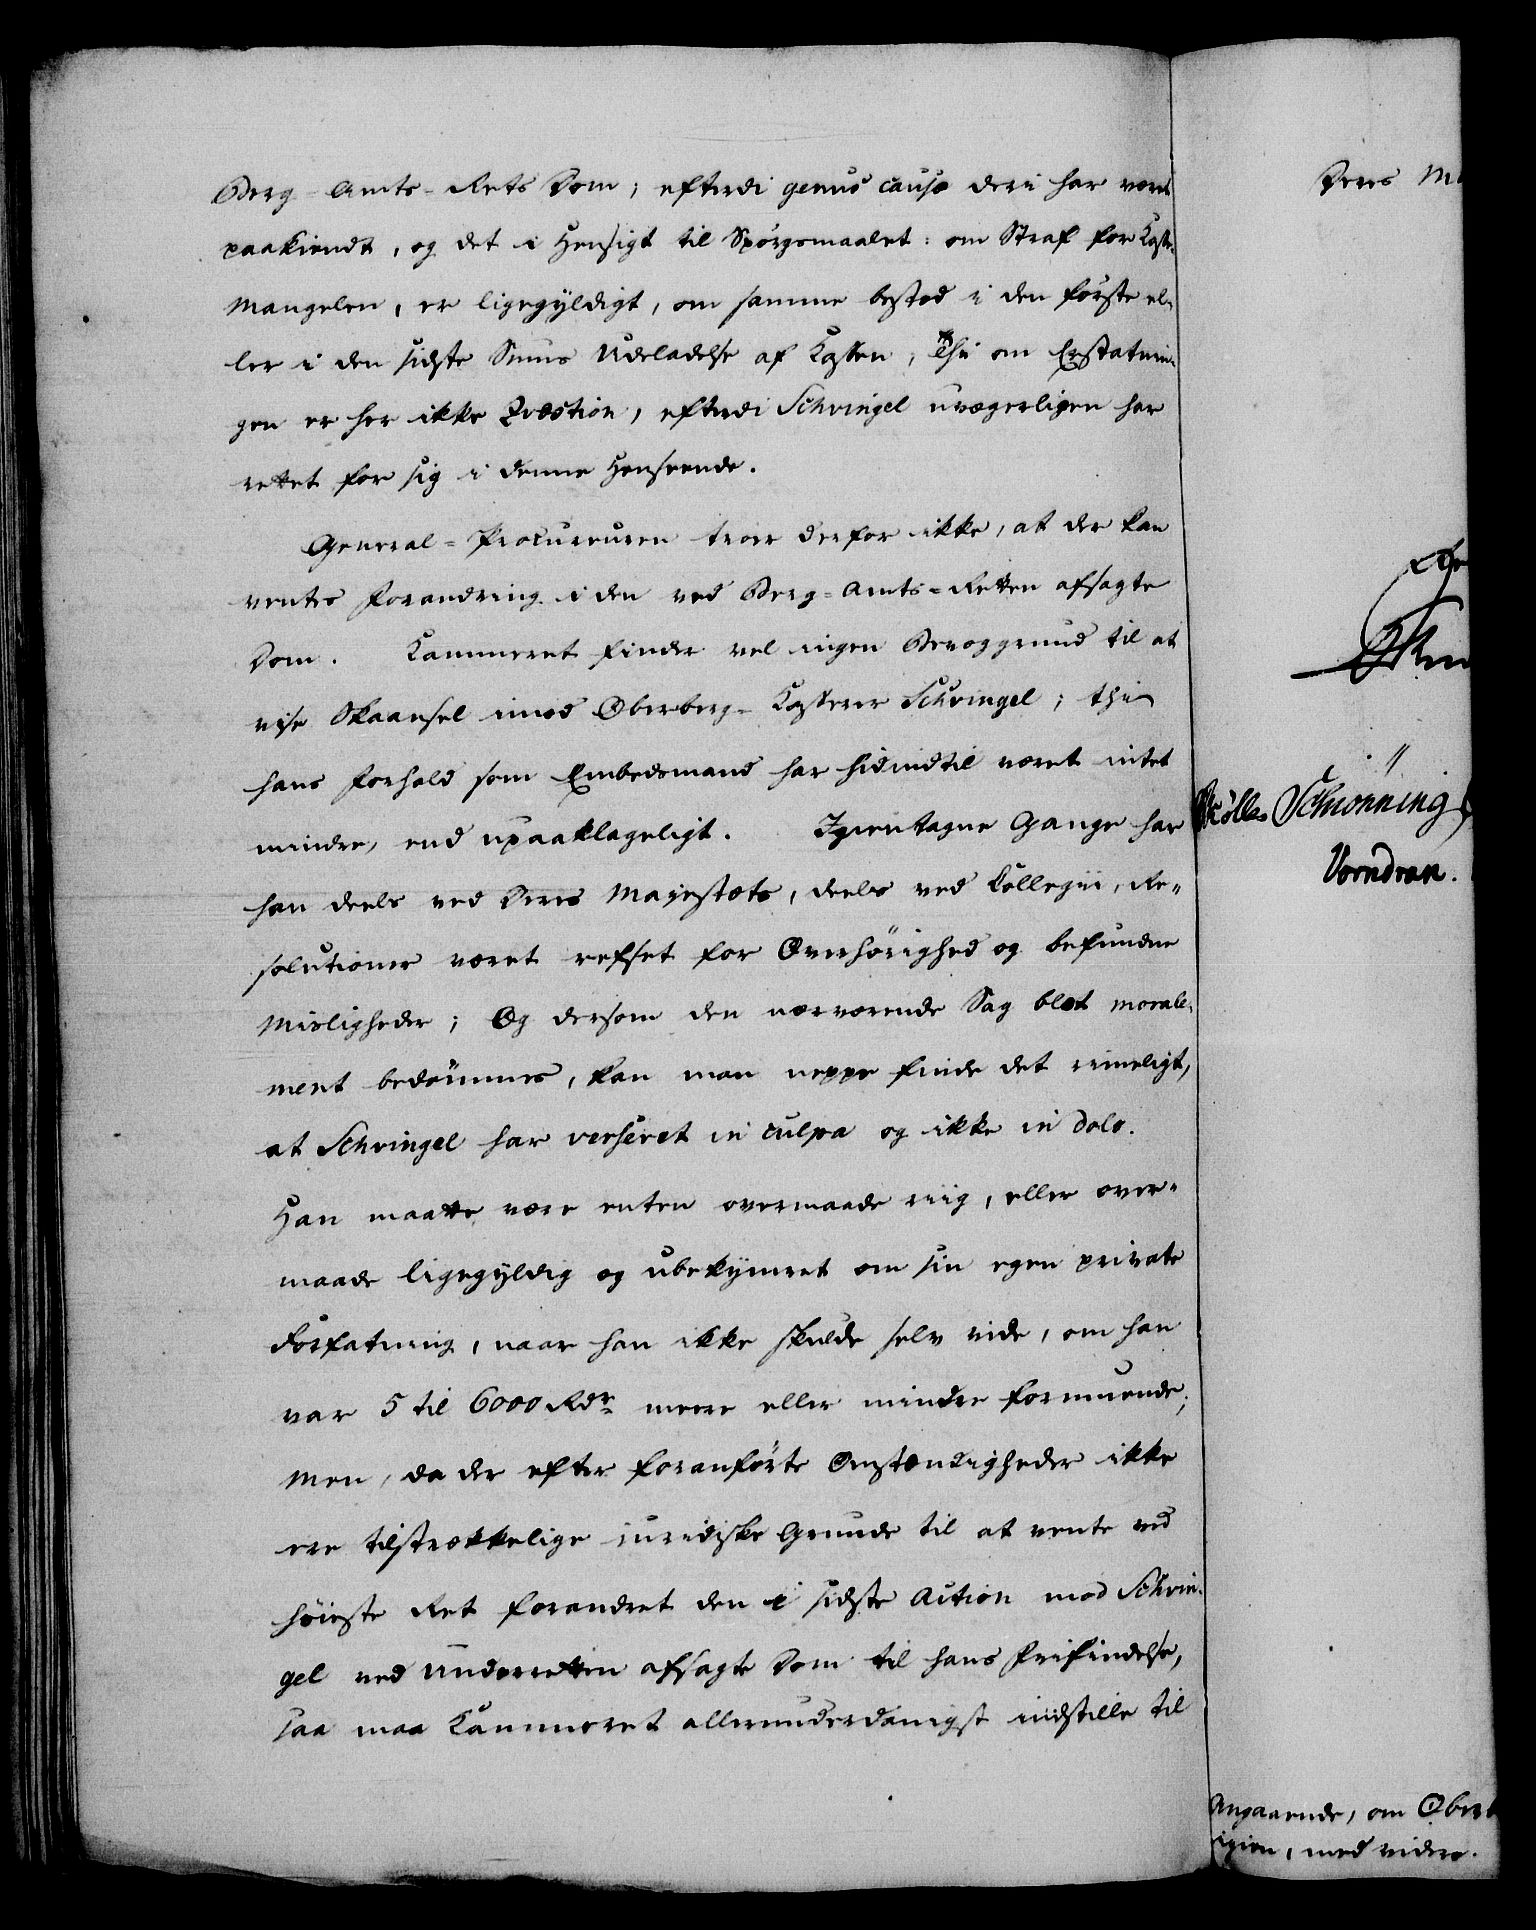 Berg-Amts-Rets Dom; efterdi genus causæ deri har været
paakiendt, og det i Hensigt til Spørgsmaalet: om Straf for Kasse-
Mangelen, er ligegyldigt, om samme bestod i den første el-
ler i den sidste Sums Udeladelse af Kassen; Thi om Erstatnin-
gen er her ikke Qvæstion, efterdi Schvingel uvægerligen har
rettet for sig i denne Henseende.
General-Procureuren troer derfor ikke, at der kan
ventes Forandring i den ved Berg-Amts-Retten afsagte
Dom. Kammeret finder vel ingen Bevæggrund til at
vise Skaansel imod Oberberg-Kasserer Schvingel; thi
hans Forhold som Embedsmand har hidindtil været intet
mindre, end upaaklageligt. Igientagne Gange har
han deels ved Deres Majestæts, deels ved Collegii, Re-
solutioner været refset for Overhørighed og befundne
Misligheder; Og dersom den nærværende Sag blot morale-
ment bedømmes, kan man neppe finde det rimeligt,
at Schvingel har verseret in culpa og ikke in dolo.
Han maatte være enten overmaade riig, eller over-
maade ligegyldig og ubekymret om sin egen private
Forfatning, naar han ikke skulde selv vide, om han
var 5 til 6000 Rdr meere eller mindre formuende;
Men, da der efter foranførte Omstændigheder ikke
ere tilstrækkelige juridiske Grunde til at vente ved
høieste Ret forandret den i sidste Action mod Schvin-
gel ved Underretten afsagte Dom til hans Frifindelse,
saa maa Kammeret allerunderdanigst indstille til
Deres M
Schiønning
Vorndran.
Angaaende, om Oberb
igien, med videre.